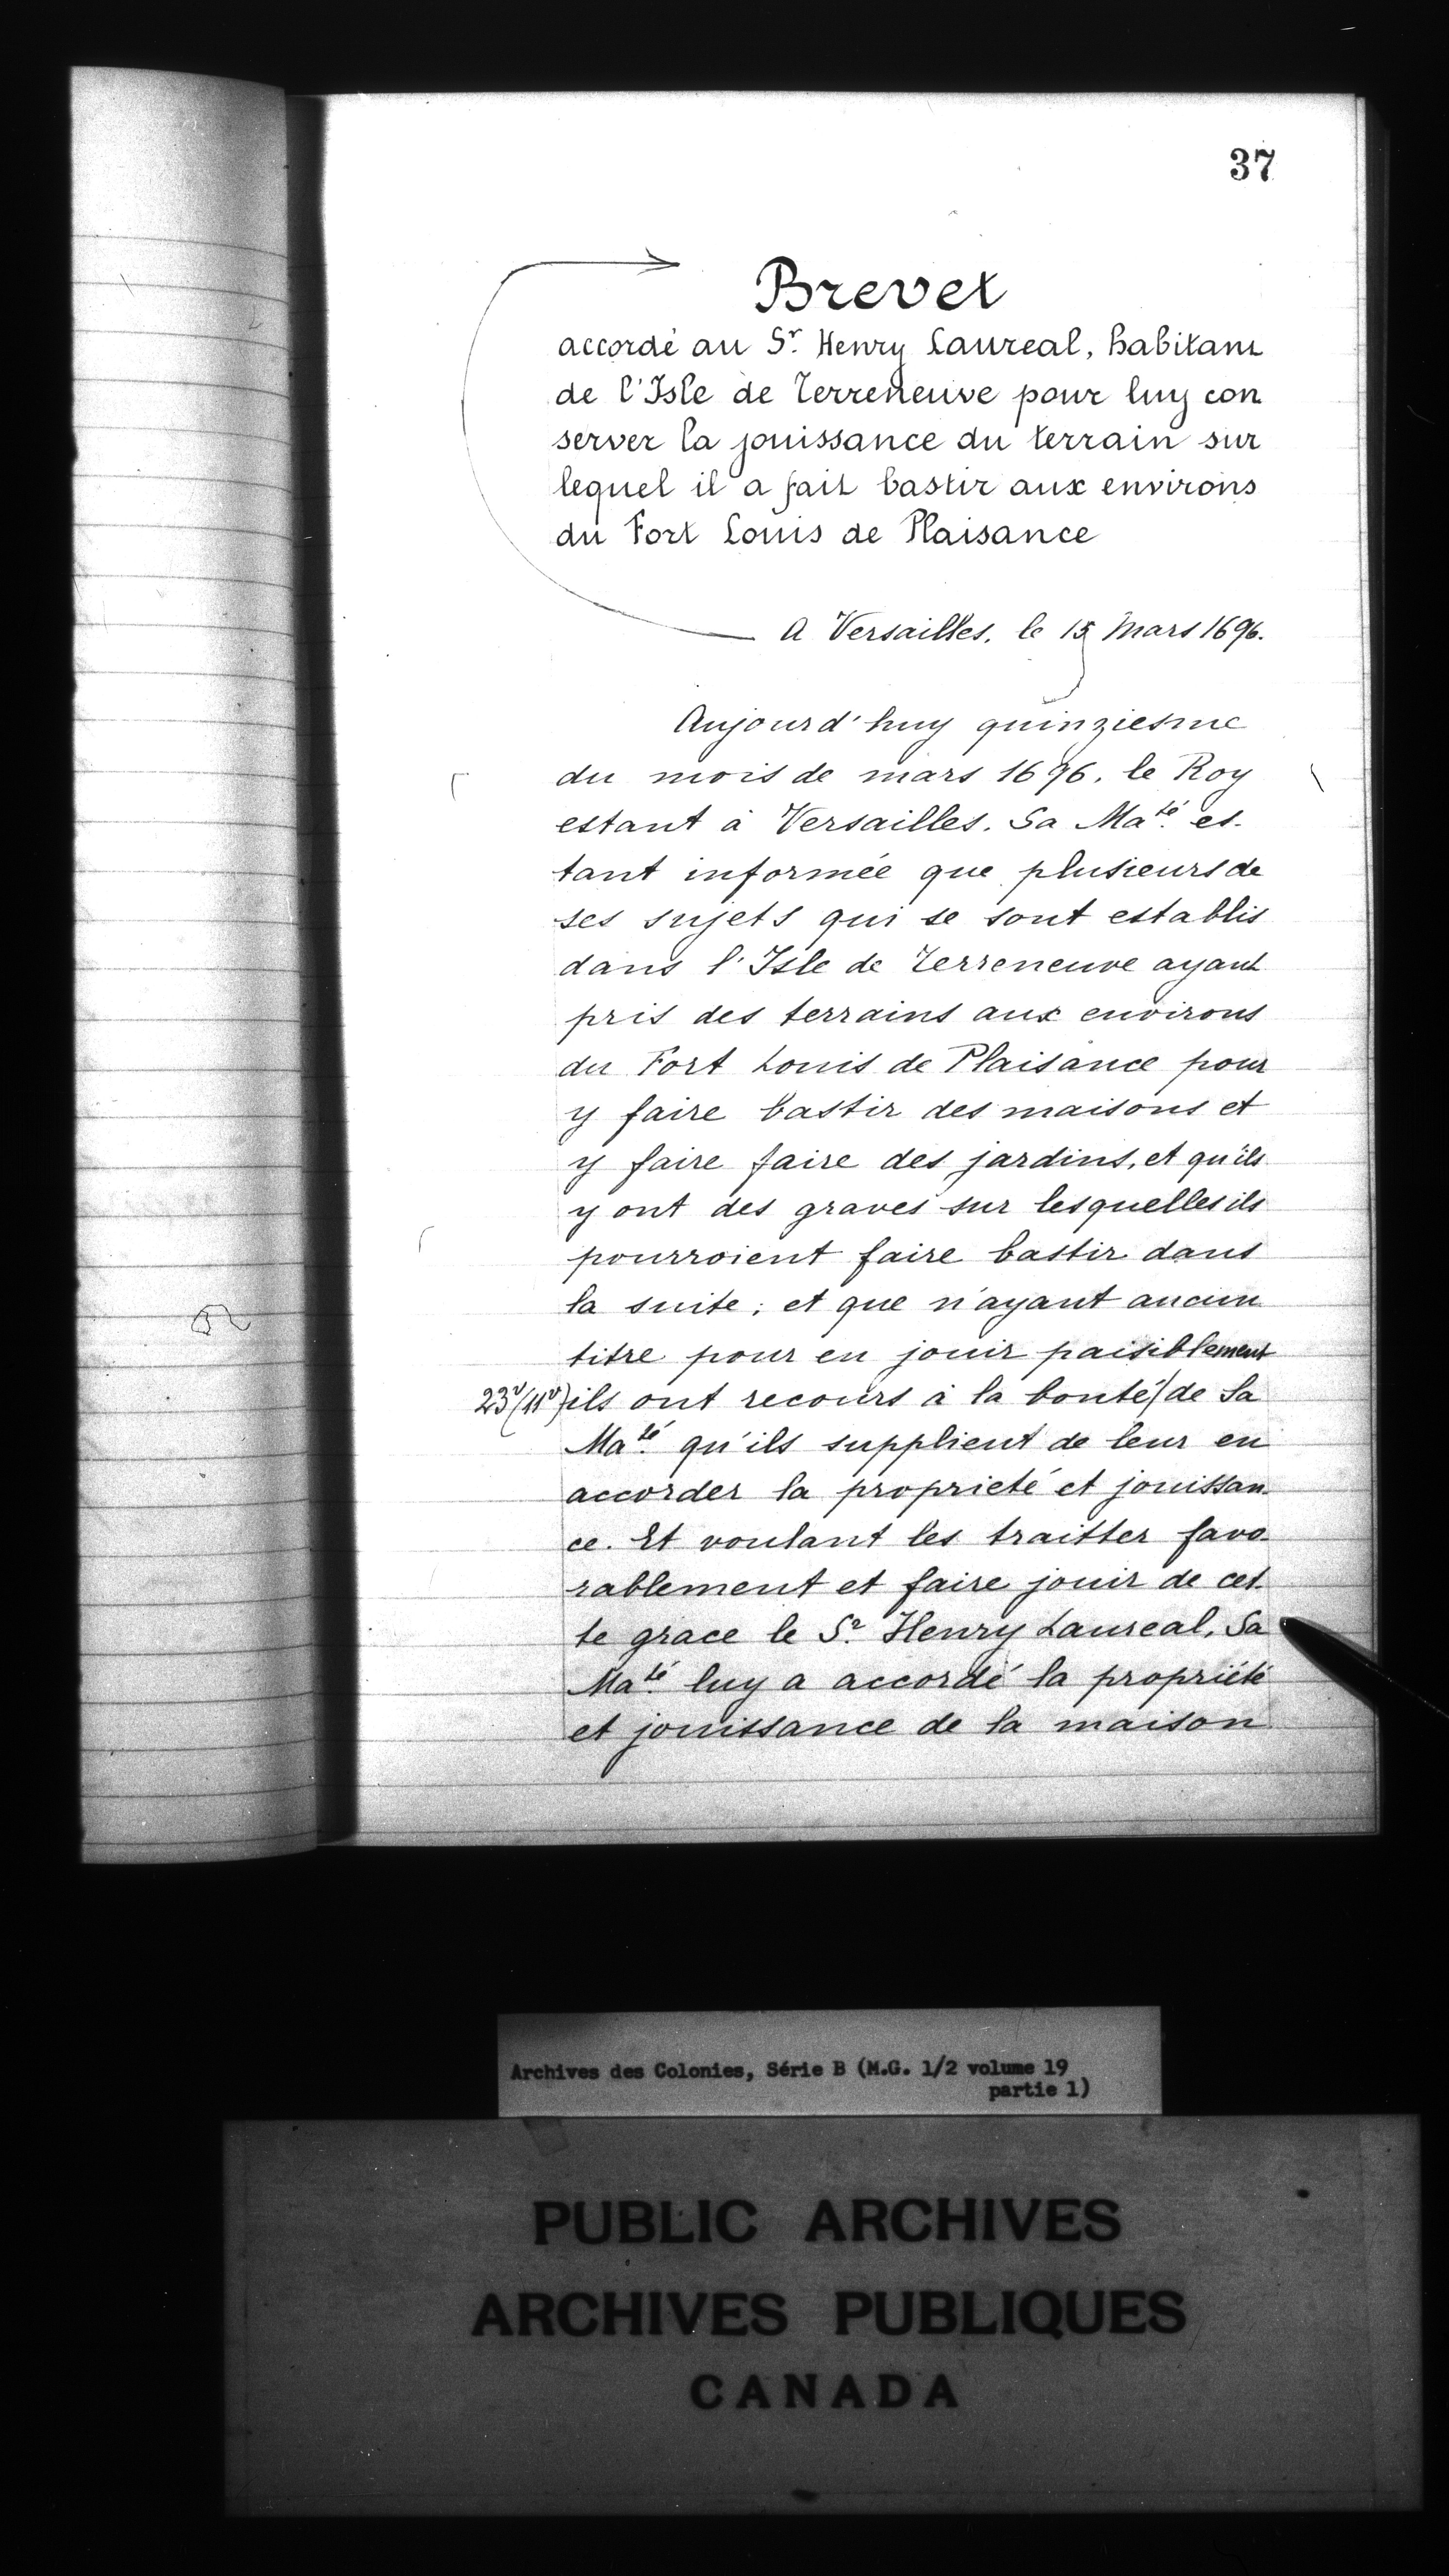 37
Brevet
accordé au Sr. Henry Laureal, habitant
de l'Isle de Terreneuve pour luy con
server la jouissance du terrain sur
lequel il a fait bastir aux environs
du Fort Louis de Plaisance
A Versailles, le 15 Mars 1696.
Aujourd'huy quinziesme
du mois de mars 1696. le Roy
estant à Versailles. Sa Maté. es-
tant informée que plusieurs de
ses sujets qui se sont establis
dans l'Isle de Terreneuve ayant
pris des terrains aux environs
du Fort Louis de Plaisance pour
y faire bastir des maisons et
y faire faire des jardins, et qu'ils
y ont des graves sur lesquelles ils
pourroient faire bastir dans
la suite; et que n'ayant aucun
titre pour en jouir paisiblement
23v(11v) ils ont recours à la bonté/de Sa
Maté. qu'ils supplient de leur en
accorder la proprieté et jouissan-
ce. Et voulant les traitter favo-
rablement et faire jouir de cet-
te grace le Sr. Henry Laureal, Sa
Maté. luy a accordé la propriété
et jouissance de la maison
Archives des Colonies, Série B (M.G. 1/2 volume 19
partie 1)
PUBLIC ARCHIVES
ARCHIVES PUBLIQUES
CANADA